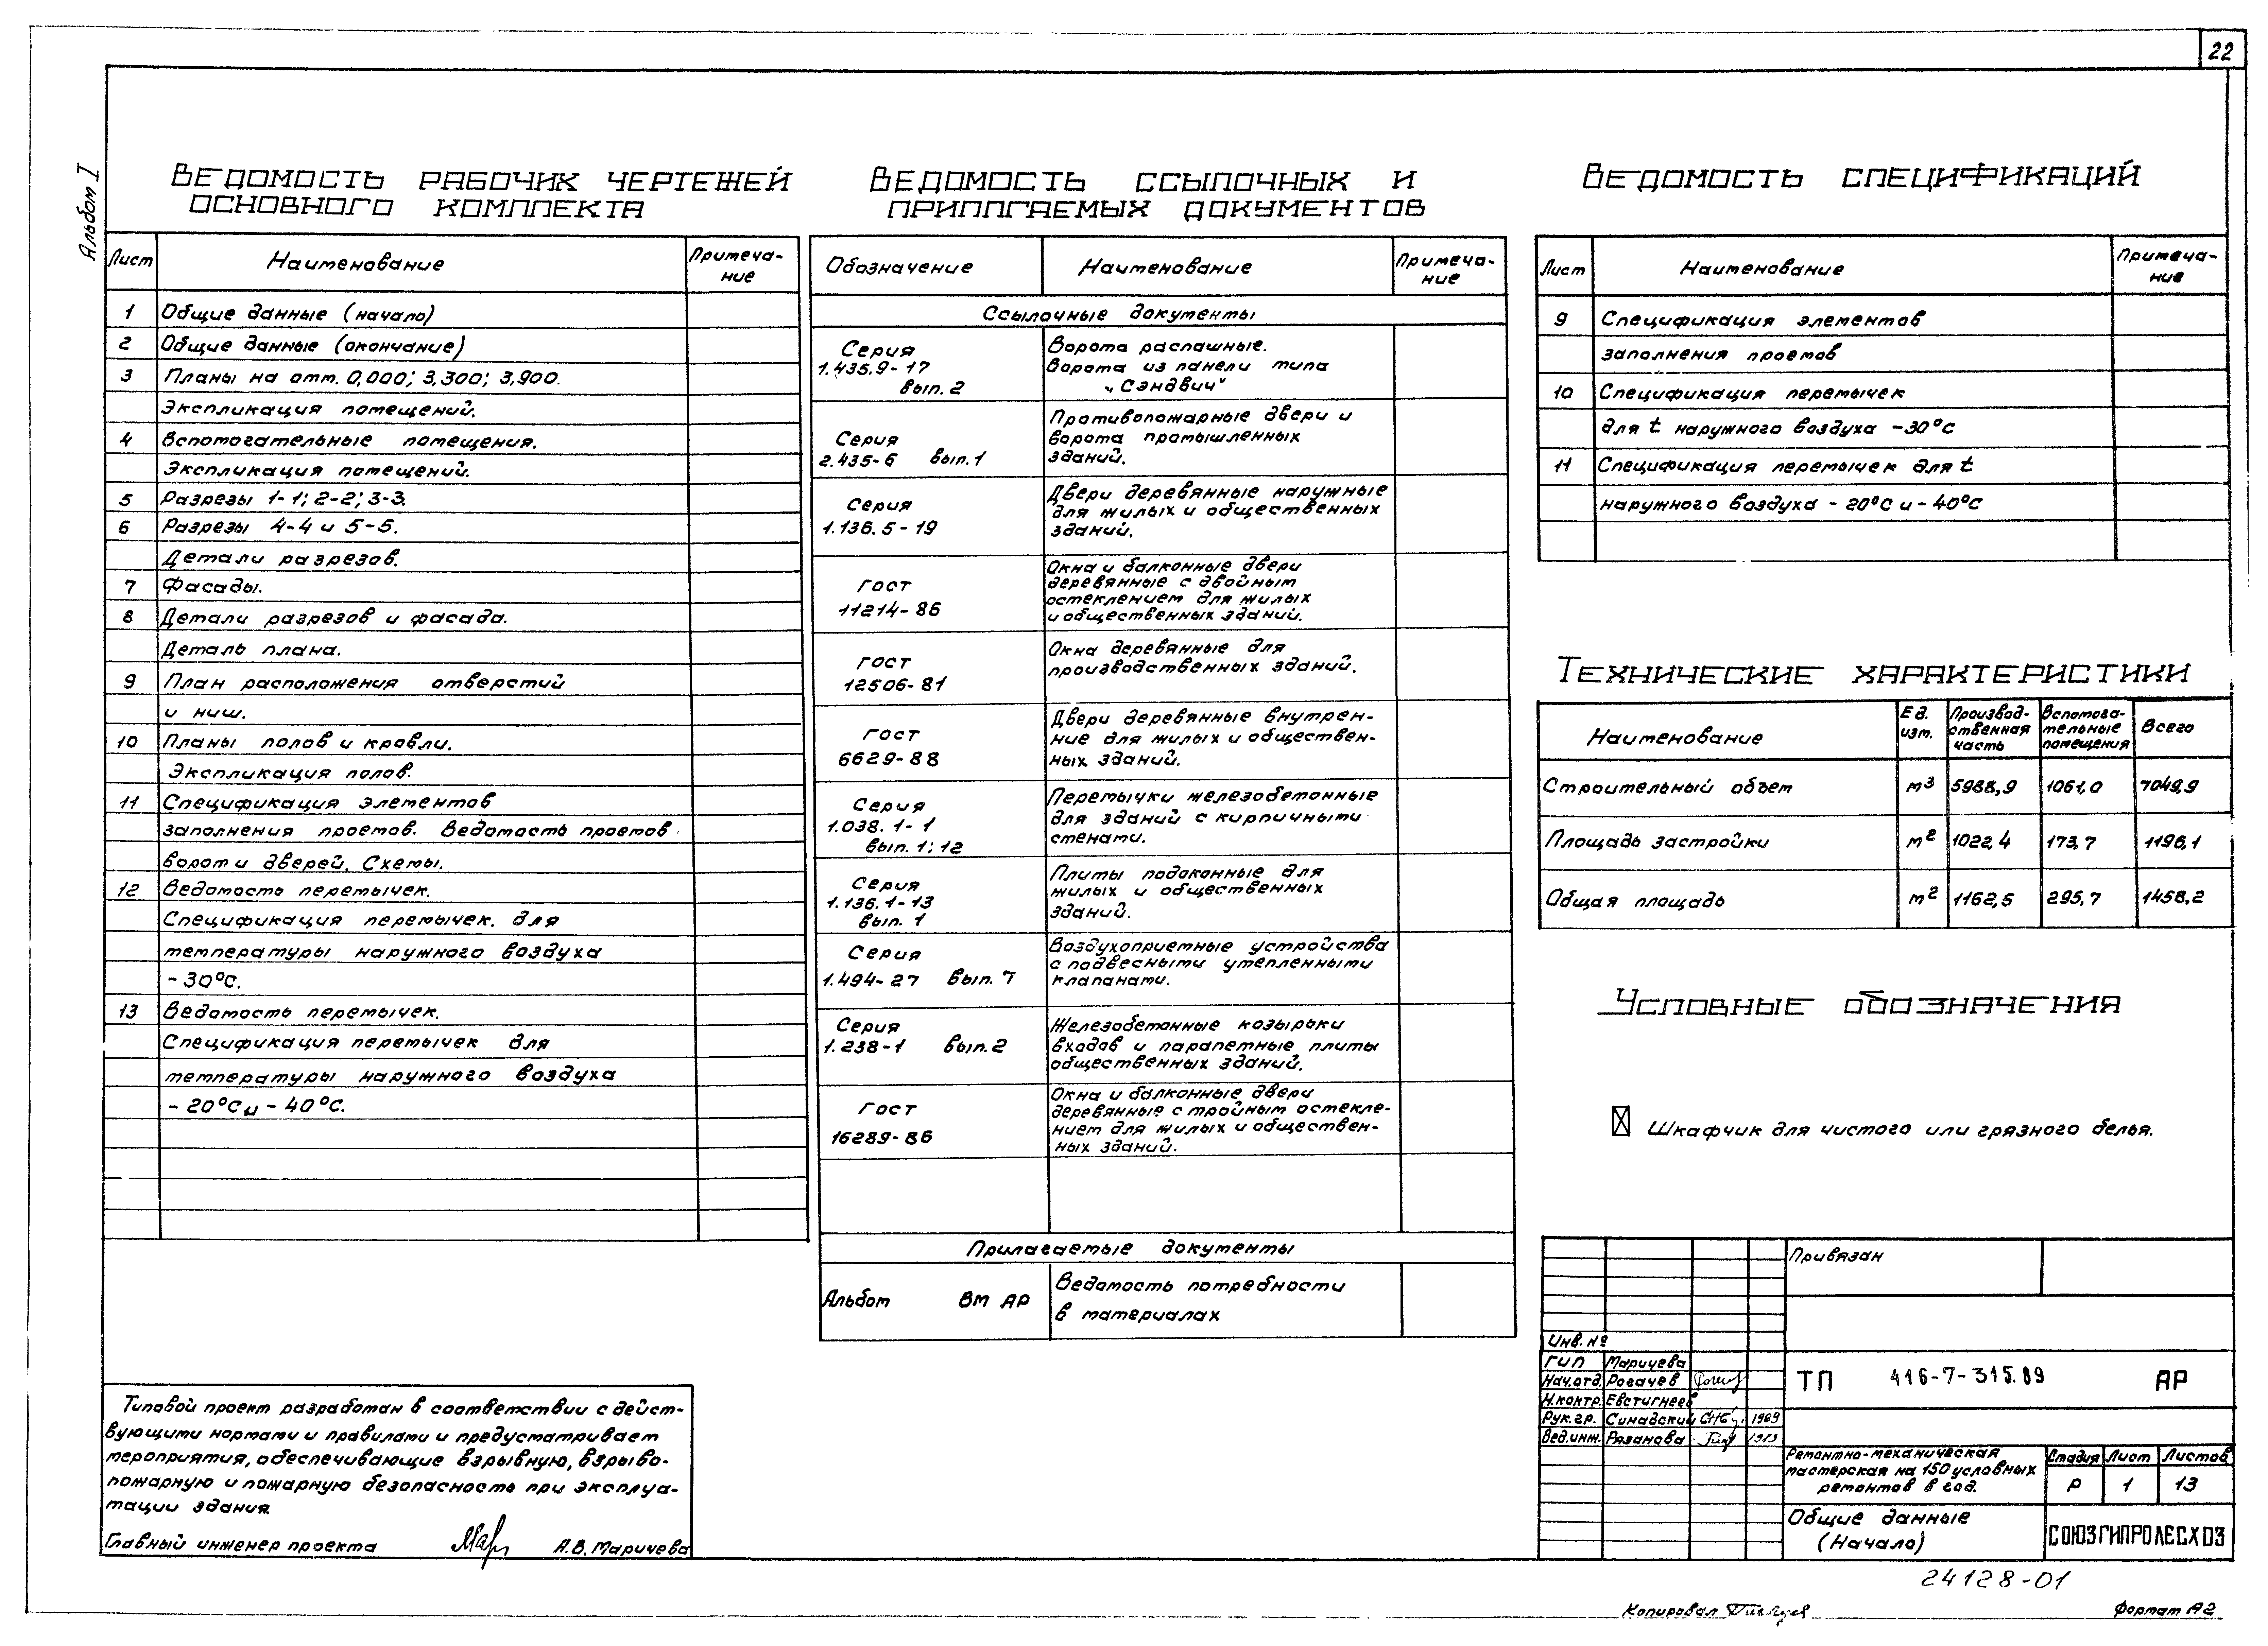 22
Альбом I
Ведомость рабочих чертежей
основного комплекта
Лист Наименование Примеча-
ние
1 Общие данные (начало)
2 Общие данные (окончание)
3 Планы на отм. 0,000; 3,300; 3,900.
Экспликация помещений.
4 Вспомогательные помещения.
Экспликация помещений.
5 Разрезы 1-1; 2-2; 3-3.
6 Разрезы 4-4 и 5-5.
Детали разрезов.
7 Фасады.
8 Детали разрезов и фасада.
Деталь плана.
9 План расположения отверстий
и ниш.
10 Планы полов и кровли.
Экспликация полов.
11 Спецификация элементов
заполнения проемов. Ведомость проемов
ворот и дверей. Схемы.
12 Ведомость перемычек.
Спецификация перемычек. для
температуры наружного воздуха
-30°С.
13 Ведомость перемычек.
Спецификация перемычек для
температуры наружного воздуха
-20°С и -40°С.
Ведомость ссылочных и
прилагаемых документов
Обозначение Наименование Примеча-
ние
Ссылочные документы
Серия
1.435.9-17
вып.2
Ворота распашные.
Ворота из панели типа
„Сэндвич"
Серия
2.435-6 вып.1
Противопожарные двери и
ворота промышленных
зданий.
Серия
1.136.5-19
Двери деревянные наружные
для жилых и общественных
зданий.
ГОСТ
11214-86
Окна и балконные двери
деревянные с двойным
остеклением для жилых
и общественных зданий.
ГОСТ
12506-81
Окна деревянные для
производственных зданий.
ГОСТ
6629-88
Двери деревянные внутрен-
ние для жилых и обществен-
ных зданий.
Серия
1.038.1-1
вып.1; 12
Перемычки железобетонные
для зданий с кирпичными
стенами.
Серия
1.136.1-13
вып. 1
Плиты подоконные для
жилых и общественных
зданий.
Серия
1.494-27 вып. 7
Воздухоприемные устройства
с подвесными утепленными
клапанами.
Серия
1.238-1 вып.2
Железобетонные козырьки
входов и парапетные плиты
общественных зданий.
ГОСТ
16289-86
Окна и балконные двери
деревянные с тройным остекле-
нием для жилых и обществен-
ных зданий.
Прилагаемые документы
Альбом ВМ АР
Ведомость потребности
в материалах
Ведомость спецификаций
Лист Наименование Примеча-
ние
9 Спецификация элементов
заполнения проемов
10 Спецификация перемычек
для t наружного воздуха -30°С
11 Спецификация перемычек для t
наружного воздуха -20°С и -40°С
Технические характеристики
Наименование Ед. изм. Производ-ственная часть Вспомога-тельные помещения Всего
Строительный объем м³ 5988,9 1061,0 7049,9
Площадь застройки м² 1022,4 173,7 1196,1
Общая площадь м² 1162,5 295,7 1458,2
Условные обозначения
Шкафчик для чистого или грязного белья.
Типовой проект разработан в соответствии с дейст-
вующими нормами и правилами и предусматривает
мероприятия, обеспечивающие взрывную, взрыво-
пожарную и пожарную безопасность при эксплуа-
тации здания.
Главный инженер проекта А.В. Маричева
Привязан
Инв. №
ГИП Маричева
Нач.отд. Рогачев
Н.контр. Евстигнеев
Рук.гр. Синадский 1989
Вед.инж. Рязанова 1989
ТП 416-7-315.89 АР
Ремонтно-механическая
мастерская на 150 условных
ремонтов в год.
Стадия Лист Листов
Р 1 13
Общие данные
(Начало)
СОЮЗГИПРОЛЕСХОЗ
24128-01
Копировал
Формат А2